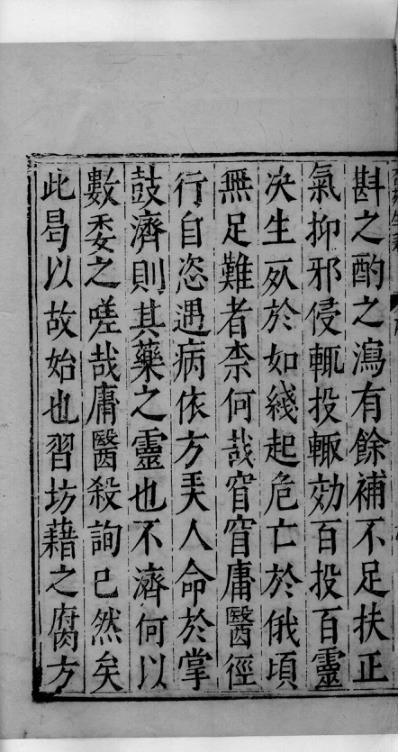 斟之酌之瀉有餘補不足扶正
氣抑邪侵輒投輙効百投百靈
决生死於如綫起危亡於俄頃
無足難者柰何㢤窅窅庸醫徑
行自恣遇病依方玊人命於掌
鼓濟則其藥之靈也不濟何以
數委之嗟哉庸醫殺詢已然矣
此曷以故始也習坊藉之腐方